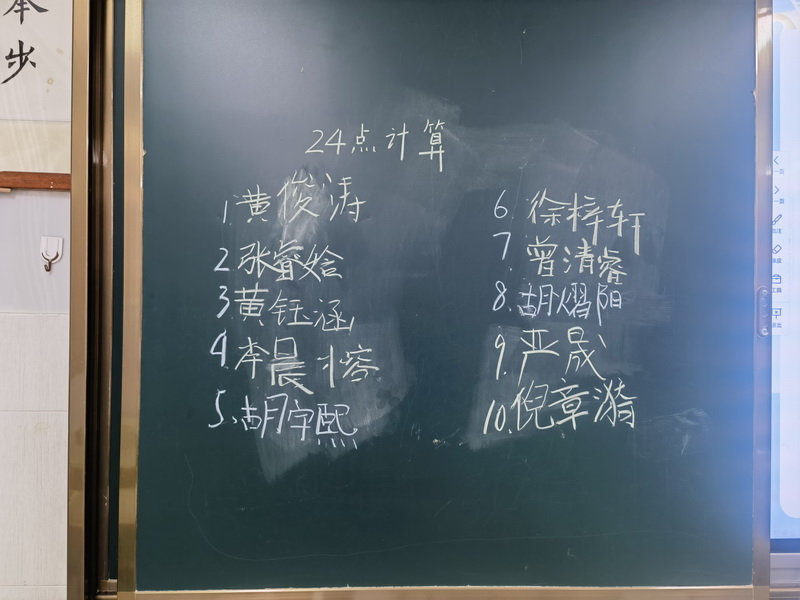 本
步
24点计算
1 黄俊涛
2 张睿晗
3 黄钰涵
4. 李晨熔
5、胡宇熙
6. 徐梓轩
7. 曾清睿
8. 胡熠阳
9. 严晟
10. 倪章漪